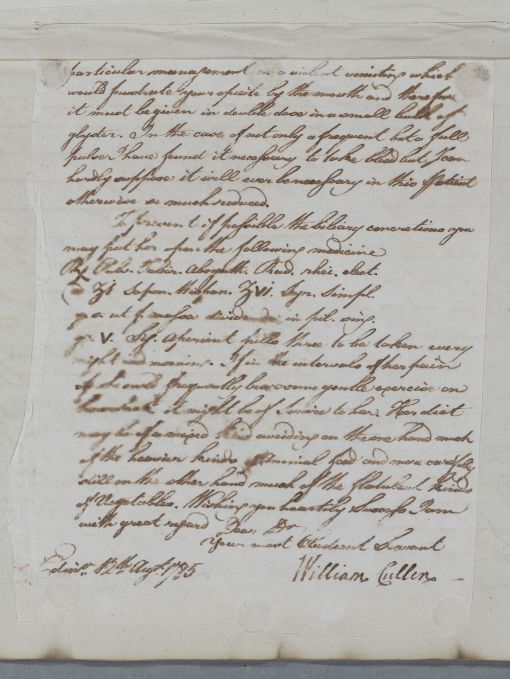 particular management as a violent vomiting which
would frustrate your opiate by the mouth and therefore
it must be given in double dose in a small bulk of
glyster. In the case of not only a frequent but a full
pulse I have found it necessary to take blood but I can
hardly suppose it will ever be necessary in this Patient
otherwise so much reduced.
To prevent if possible the biliary concretions you
may put her upon the following medicine
Rx Pulv. Rad. rhei. elect.
ʒi Sapon. Hispan. ʒvi Syr. Simpl.
q. s. ut f. massa dividend in pil. sing.
gr. v. Sig. aperient pills three to be taken every
night and morning. If in the intervals of her pain
if she could frequently bear some gentle exercise on
horseback it might be of service to her. Her diet
may be of a mixed kind avoiding on the one hand much
of the heavier kinds of animal food and more carefully
still on the other hand much of the flatulent kinds
of Vegetables. Wishing you heartily Success I am
with great regard Dear Dr
Your most Obedient Servant
Edinr. 12th Augt. 1785 William Cullen